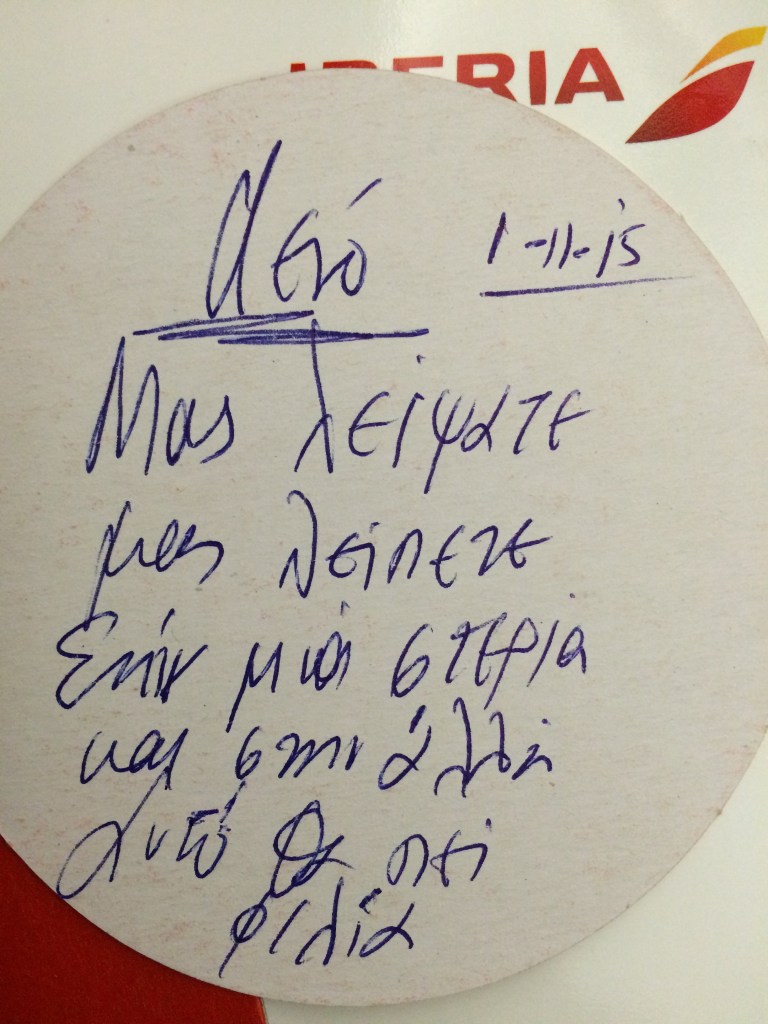 IBERIA
1-11-15
Μας λείψατε
μας λείπετε
Στήν μιά στεριά
και στην άλλη
Αυτό θα πει
φιλία